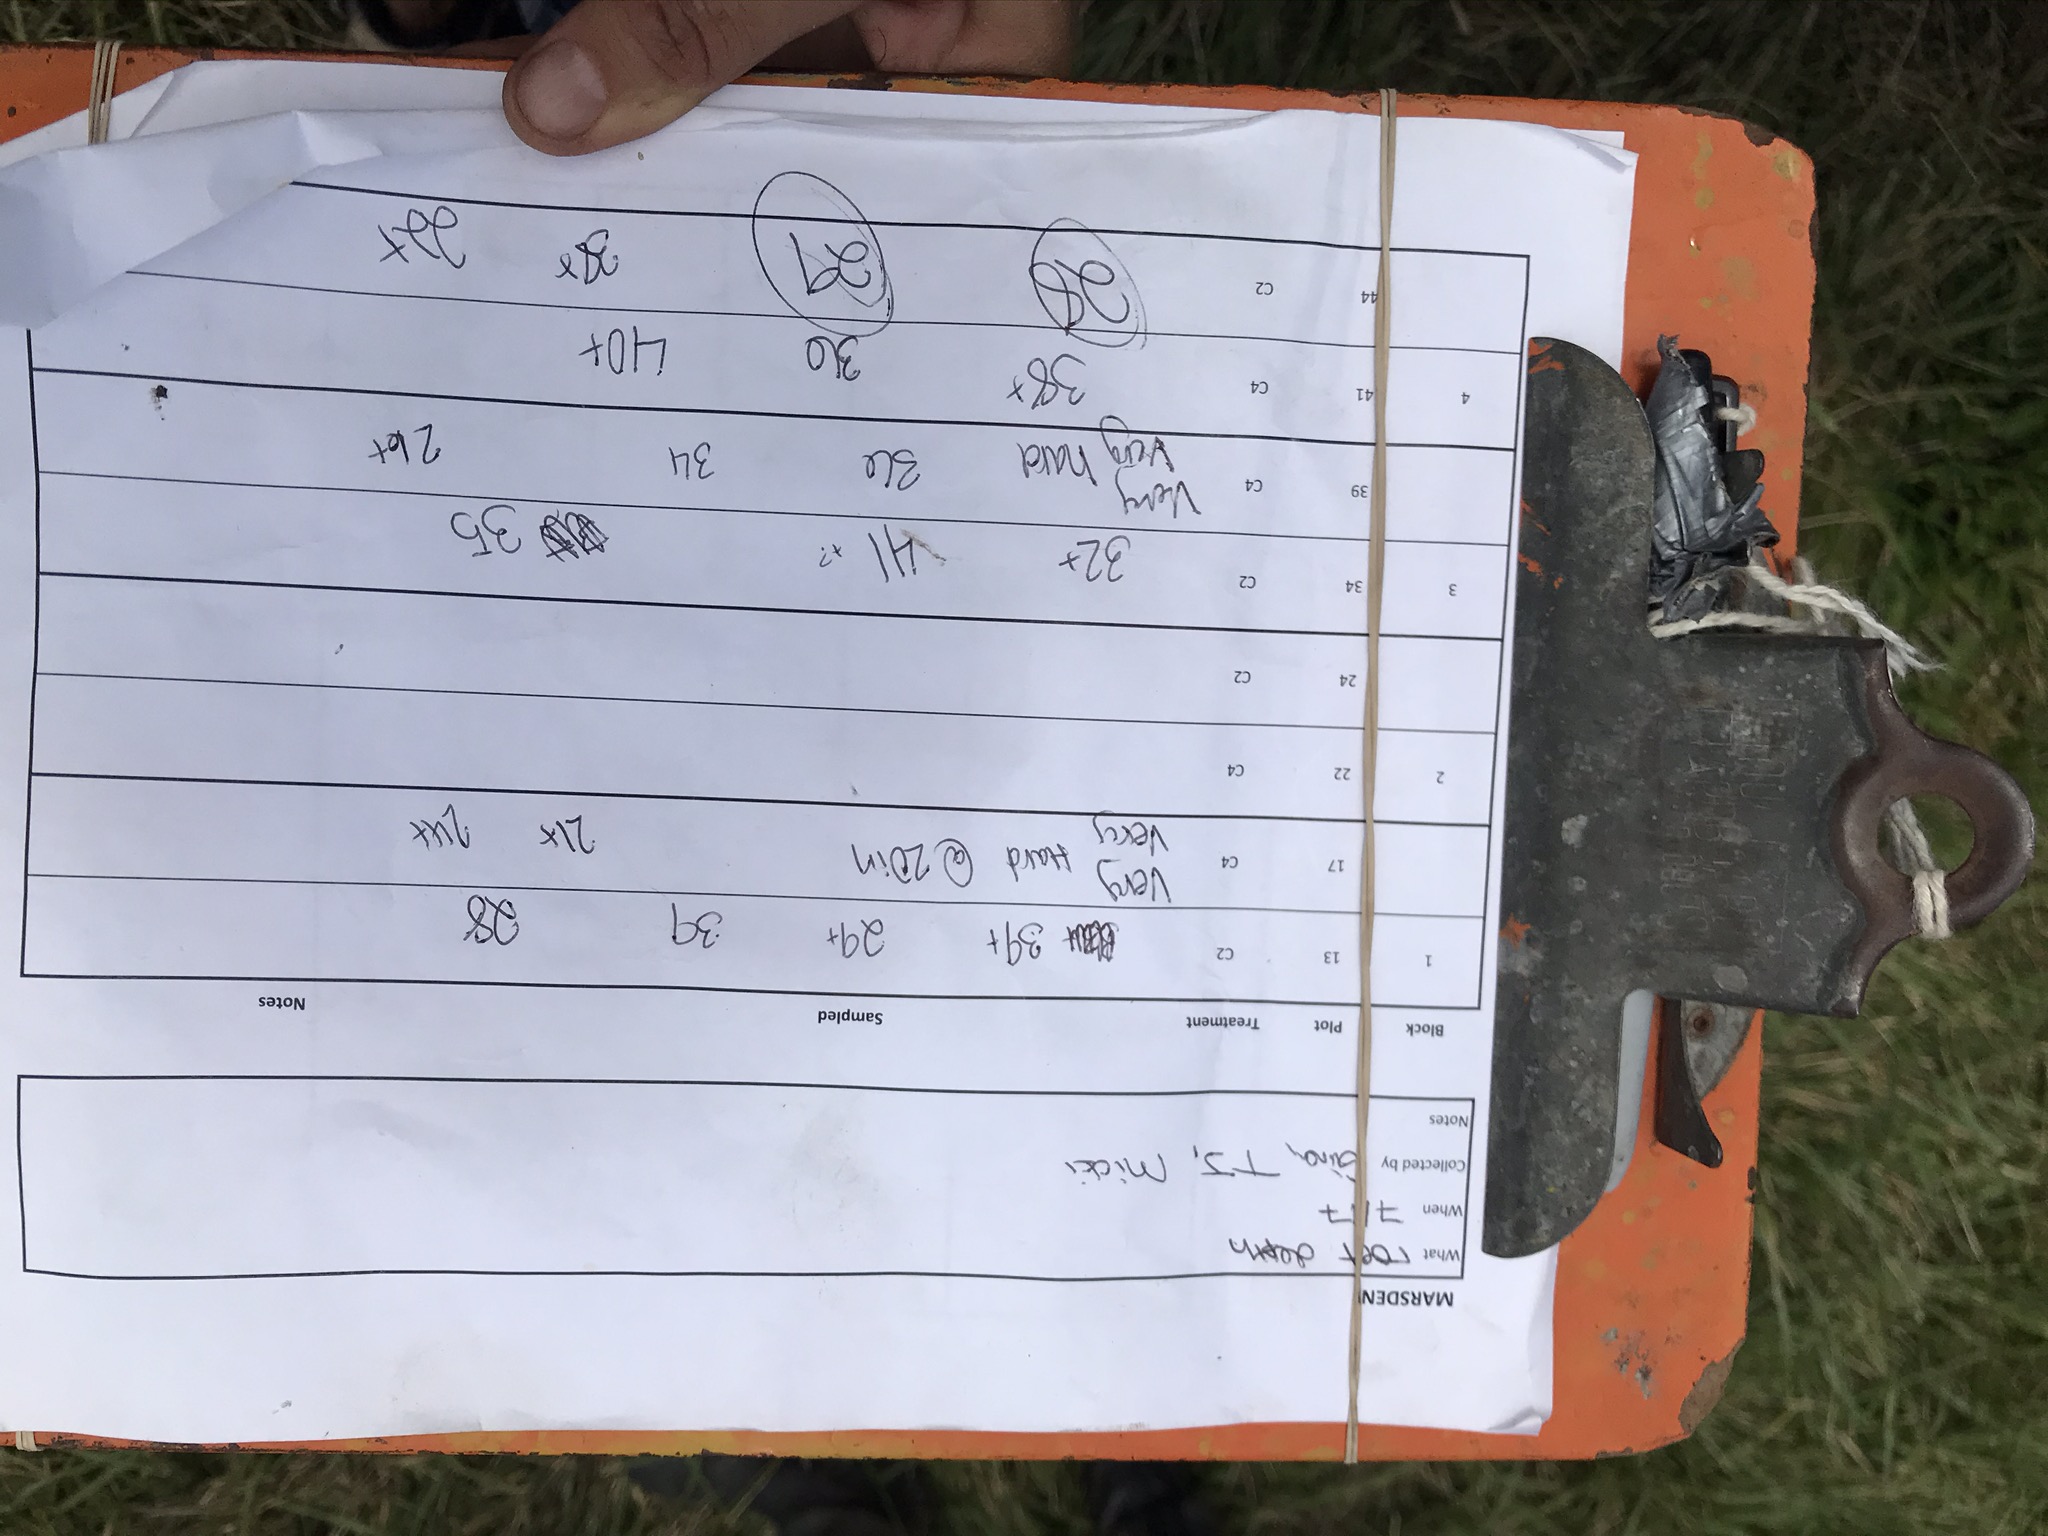 MARSDEN
What root depth
When 7/17
Collected by Gina, TJ, Micki
Notes
Block Plot Treatment Sampled Notes
1 13 C2 39+ 29+ 39 28
17 C4 Very Very Hard @ 20in 21+ 24+
2 22 C4
24 C2
3 34 C2 32+ 41 +? 35
39 C4 Very Very hard 36 34 26+
4 41 C4 38+ 36 40+
44 C2 28 29 38+ 22+